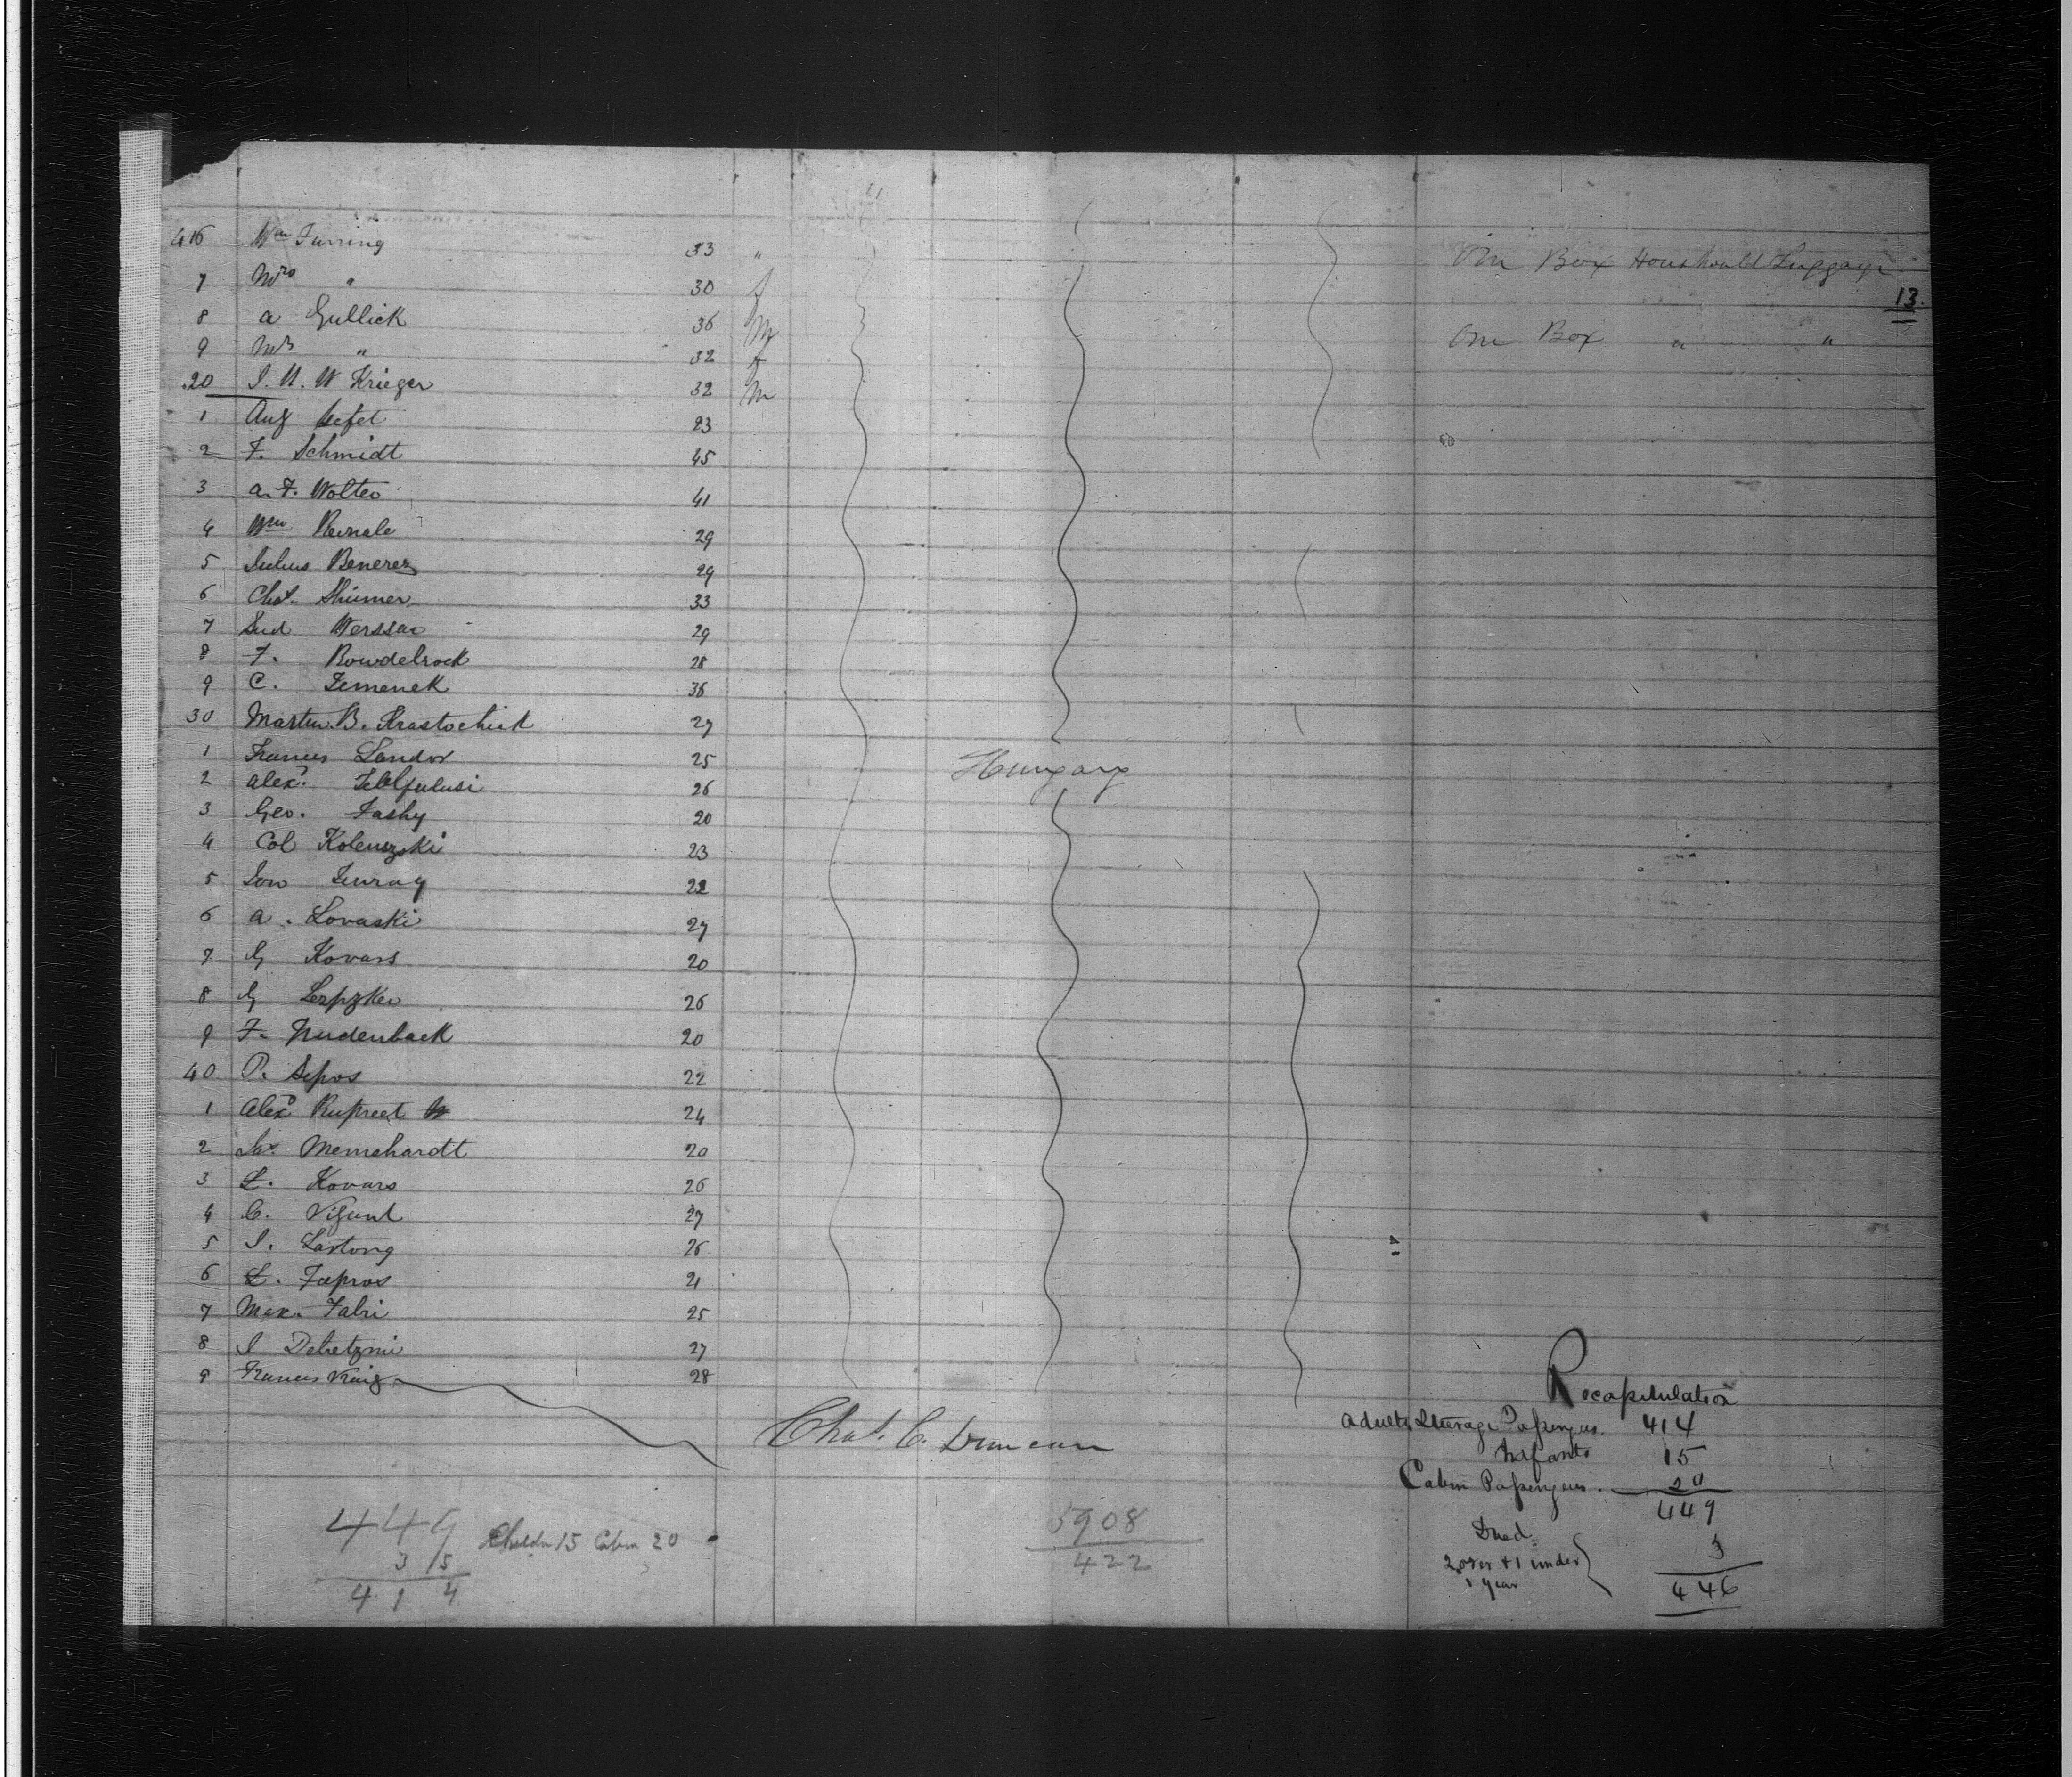 416 Wm Turring 33 " One Box Houshould Luggage
7 Mrs " 30 f
13.
8 A Gullick 36 M
9 Mrs " 32 f One Box " "
20 J. H. W Krieger 32 M
1 Aug 23
2 F. Schmidt 45
3 A. F. Wolter 41
4 Wm 29
5 Julius Benerez 29
6 Chas. Shiemer 33
7 29
8 F. Bowdelrock 28
9 C. Zemenek 36
30 Martin B. 27
1 Francis Landor 25
Hungary
2 Alexr. 26
3 Geo. Fashy 20
4 Col 23
5 22
6 A. Lovaski 27
7 G Kovars 20
8 G 26
9 F. Nudenback 20
40 P. Sepos 22
1 Alexr Rupreet 24
2 Memehardt 20
3 L. Kovars 26
4 C. 27
5 J. Lartong 26
6 L. Fapros 21
7 Max. Fabri 25
8 J Debetzni 27
9 Francis 28
Recapitulation
Chas. C. Duncan
Adults Steerage Passengers. 414
Infants 15
Cabin Passengers. 20
449
449 Childn 15 Cabin 20
3 5
414
5908
422
Died
2 over + 1 under 3
1 year
446